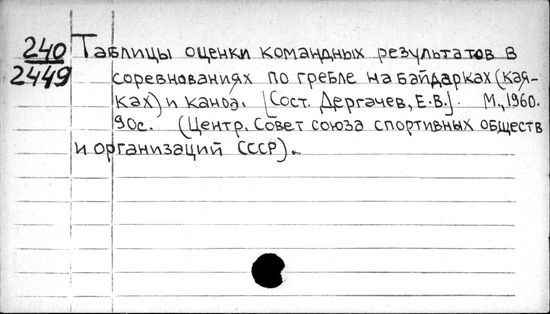 240 Таблицы оценки командных результатов в
2449 соревнованиях по гребле на байдарках (кая-
ках) и каноэ. [Сост. Дергачев, Е.В.]. М., 1960.
90с. (Центр. Совет союза спортивных обществ
и организаций СССР).